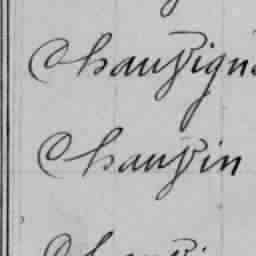 Chauvign
Chauvin